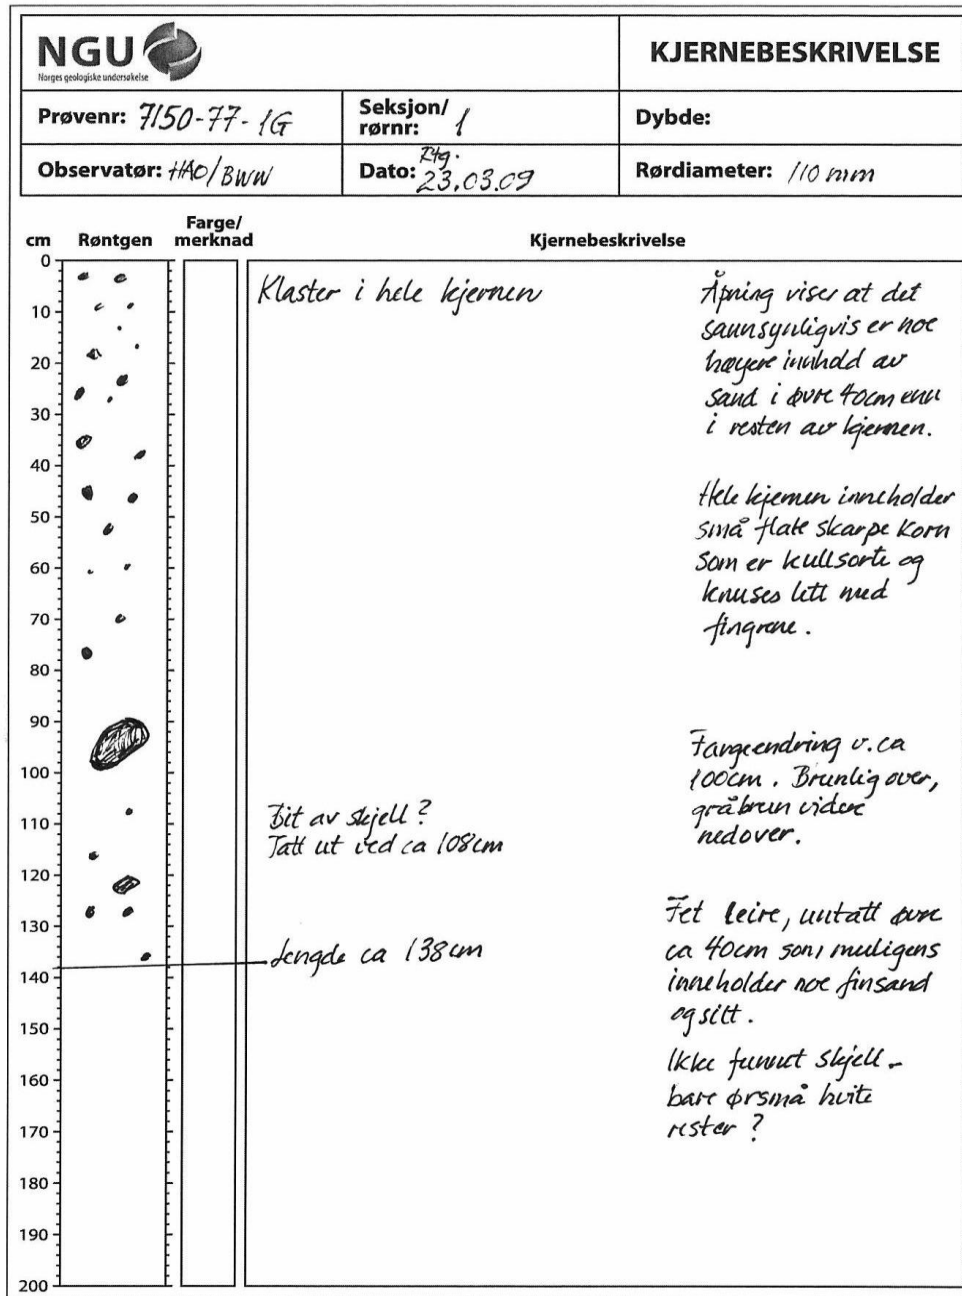 NGU
Norges geologiske undersøkelse
KJERNEBESKRIVELSE
Prøvenr: 7150-77-1G
Seksjon/
rørnr: 1
Dybde:
Observatør: HAO/BWW
Rtg.
Dato: 23.03.09
Rørdiameter: 110 mm
cm
Røntgen
Farge/
merknad
Kjernebeskrivelse
0
10
20
30
40
50
60
70
80
90
100
110
120
130
140
150
160
170
180
190
200
Klaster i hele kjernen
Bit av skjell?
Tatt ut ved ca 108cm
Lengde ca 138cm
Åpning viser at det
sannsynligvis er noe
høyere innhold av
sand i øvre 40cm enn
i resten av kjernen.
Hele kjernen inneholder
små flate skarpe korn
som er kullsorte og
knuses lett med
fingrene.
Fargeendring v. ca
100cm. Brunlig over,
gråbrun videre
nedover.
Fet leire, untatt øvre
ca 40cm som muligens
inneholder noe finsand
og silt.
Ikke funnet skjell -
bare ørsmå hvite
rester?